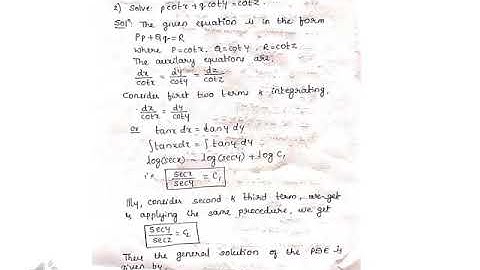 2) Solve: pcotx + qcoty = cotz.
Solⁿ. The given equation is in the form
Pp + Qq = R
where P = cotx, Q = coty, R = cotz
The auxilary equations are,
dx/cotx = dy/coty = dz/cotz
Consider first two terms & integrating,
dx/cotx = dy/coty
Or tanx dx = tany dy
∫tanx dx = ∫tany dy
log(secx) = log(secy) + log C₁
i.e. secx/secy = C₁
Illy, consider second & third term, we get
& applying the same procedure, we get
secy/secz = C₂
Thus the general solution of the PDE is
given by